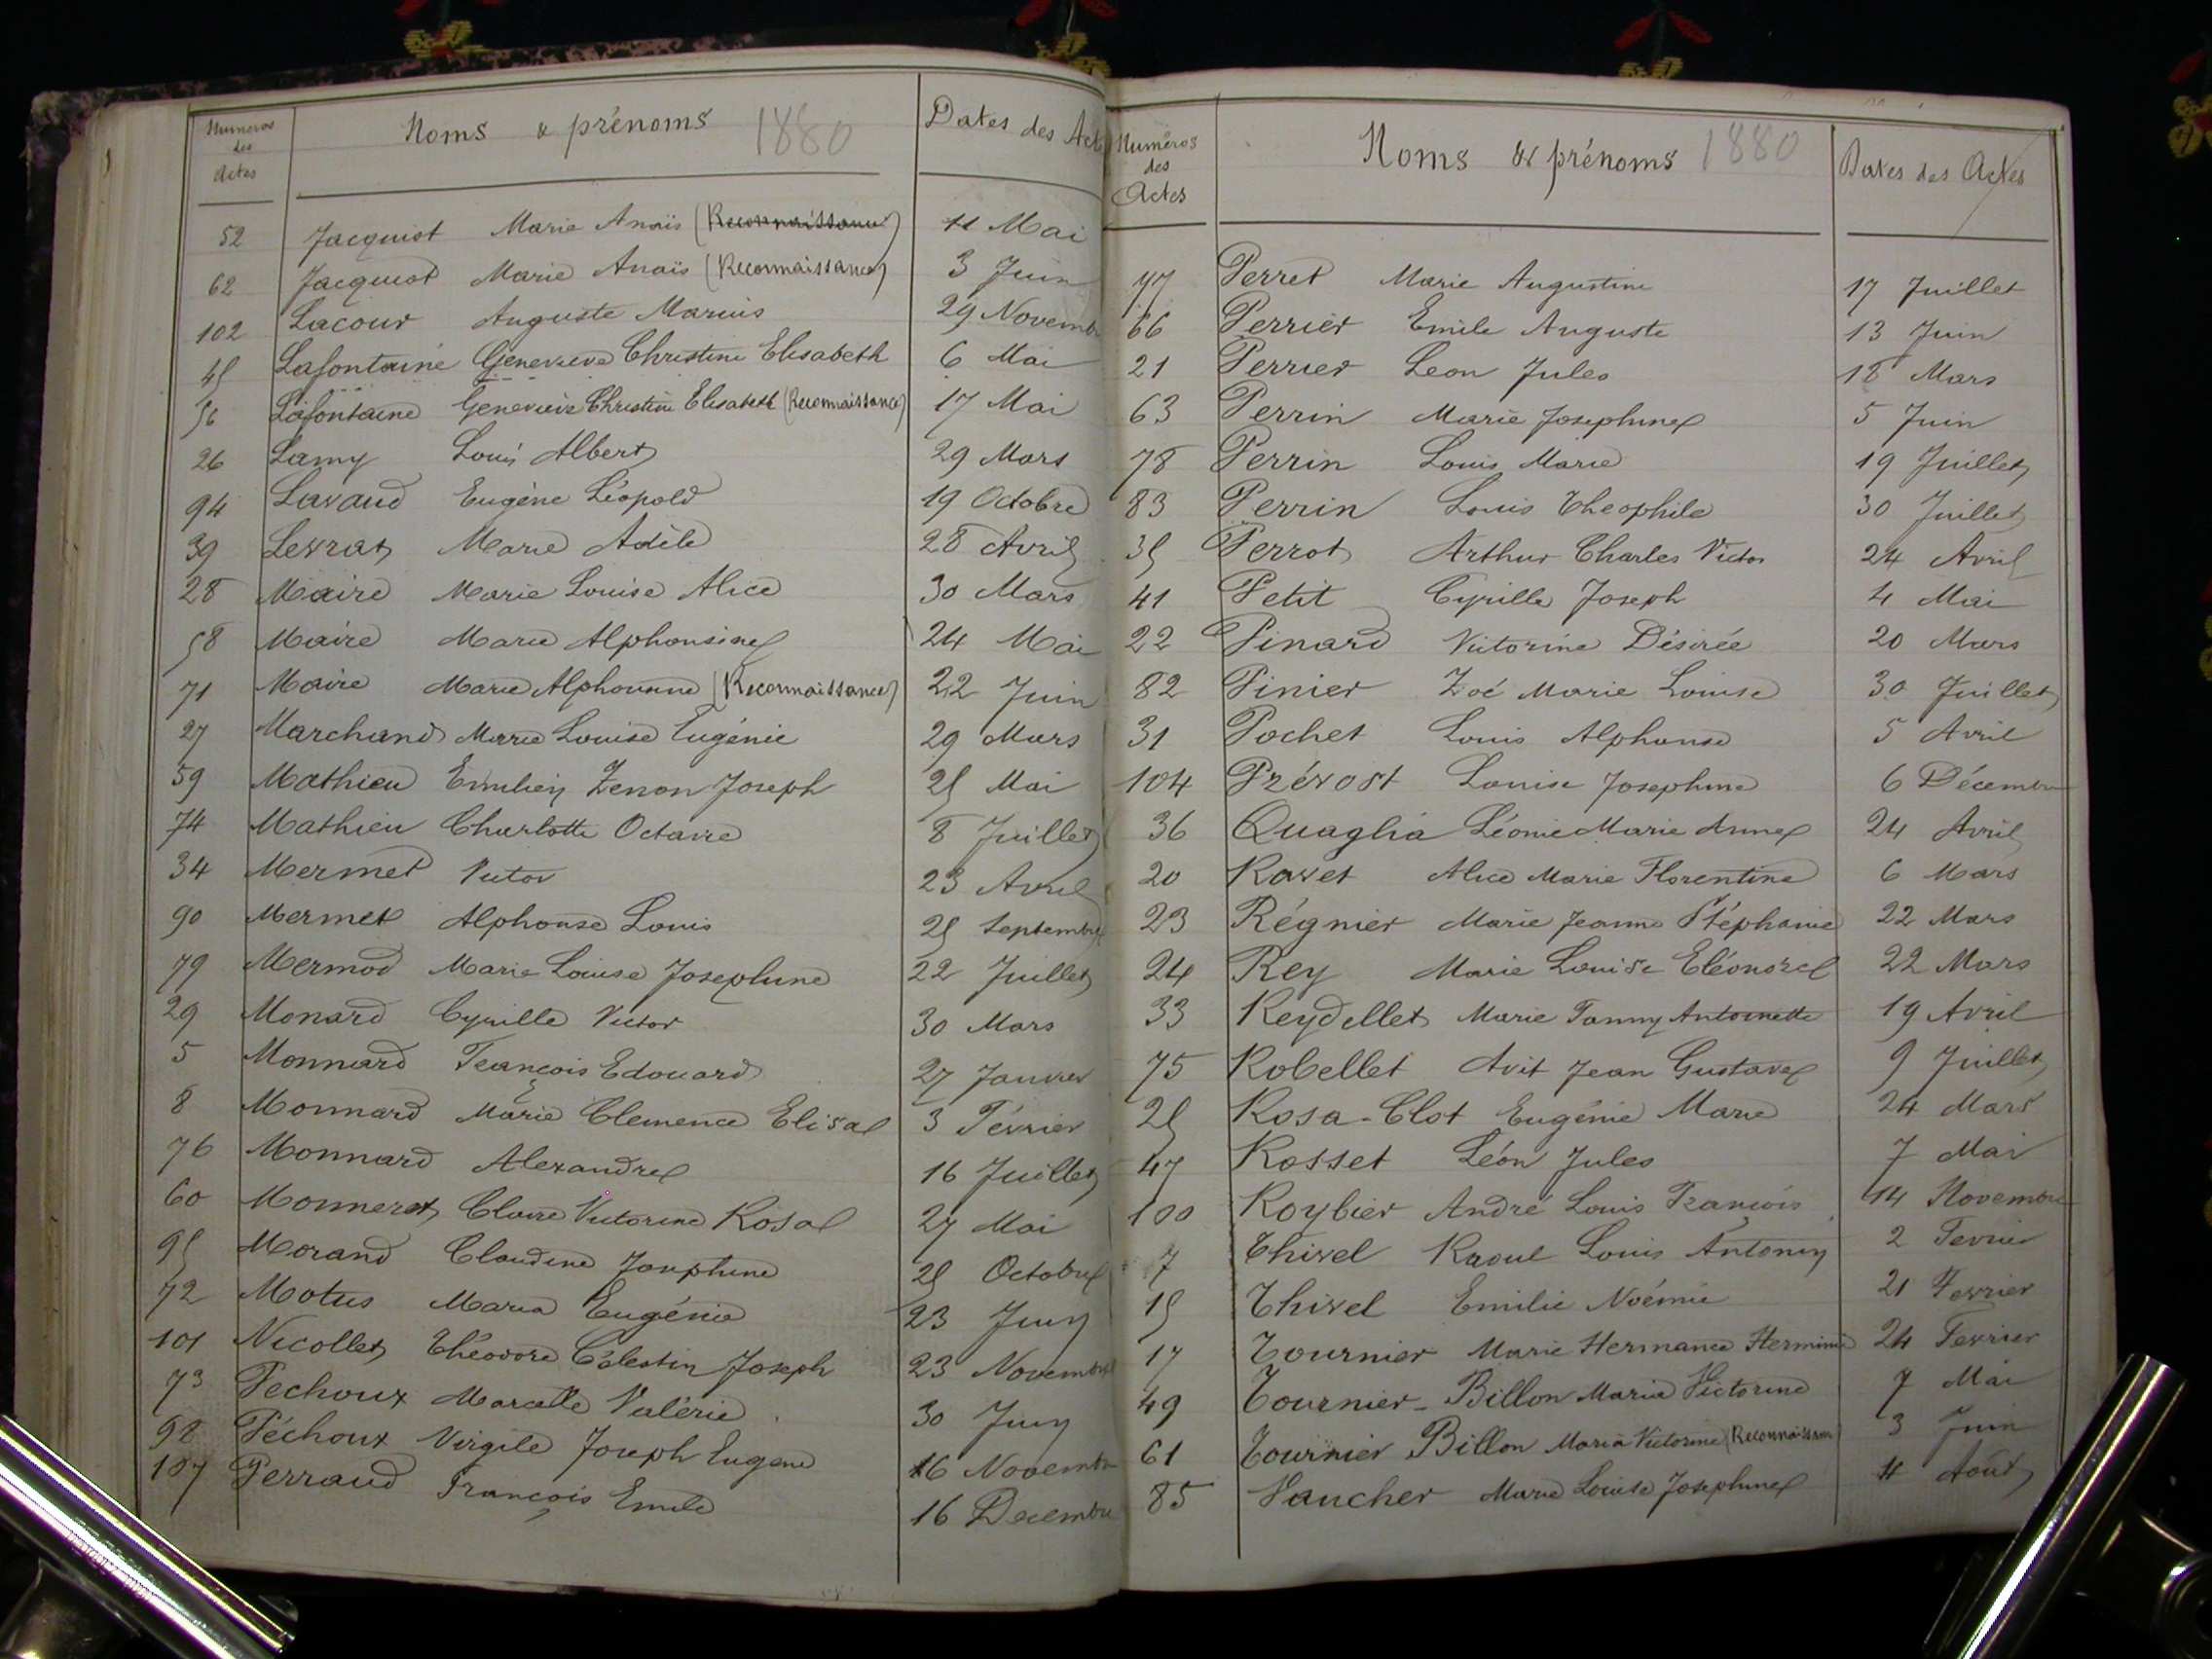 Numeros des Actes Noms & prénoms 1880 Dates des Act
52 Jacquiot Marie Anaïs (Reconnaissance) 11 Mai
62 Jacquiot Marie Anaïs (Reconnaissance) 3 Juin
102 Lacour Auguste Marius 29 Novemb
45 Lafontaine Geneviève Christine Elisabeth 6 Mai
56 Lafontaine Geneviève Christine Elisabeth (Reconnaissance) 17 Mai
26 Lamy Louis Albert 29 Mars
94 Lavaud Eugène Léopold 19 Octobre
39 Levrat Marie Adèle 28 Avril
28 Maire Marie Louise Alice 30 Mars
58 Maire Marie Alphonsine 24 Mai
71 Maire Marie Alphonsine (Reconnaissance) 22 Juin
27 Marchand Marie Louise Eugénie 29 Mars
59 Mathieu Emilien Zenon Joseph 25 Mai
74 Mathieu Charlotte Octavie 8 Juillet
34 Mermet Victor 23 Avril
90 Mermet Alphonse Louis 25 Septembre
79 Mermod Marie Louise Josephine 22 Juillet
29 Monard Cyrille Victor 30 Mars
5 Monnard François Edouard 27 Janvier
8 Monnard Marie Clemence Elisa 3 Février
76 Monnard Alexandre 16 Juillet
60 Monneret Claire Victorine Rosa 27 Mai
95 Morand Claudine Josephine 25 Octobre
72 Motus Maria Eugénie 23 Juin
101 Nicollet Théodore Célestin Joseph 23 Novembre
73 Pechoux Marcelle Valérie 30 Juin
98 Péchoux Virgile Joseph Eugene 16 Novembre
107 Perraud François Emile 16 Decembre
Numéros des Actes Noms & prénoms 1880 Dates des Actes
77 Perret Marie Augustine 17 Juillet
66 Perrier Emile Auguste 13 Juin
21 Perrier Leon Jules 18 Mars
63 Perrin Marie Josephine 5 Juin
78 Perrin Louis Marie 19 Juillet
83 Perrin Louis Theophile 30 Juillet
35 Perrot Arthur Charles Victor 24 Avril
41 Petit Cyrille Joseph 4 Mai
22 Pinard Victorine Désirée 20 Mars
82 Pinier Zoé Marie Louise 30 Juillet
31 Pochet Louis Alphonse 5 Avril
104 Prévost Louise Josephine 6 Décembre
36 Quaglia Léonie Marie Anne 24 Avril
20 Ravet Alice Marie Florentine 6 Mars
23 Régnier Marie Jeanne Stéphanie 22 Mars
24 Rey Marie Louise Eléonore 22 Mars
33 Reydellet Marie Fanny Antoinette 19 Avril
75 Robellet Avit Jean Gustave 9 Juillet
25 Rosa-Clot Eugénie Marie 24 Mars
47 Rosset Léon Jules 7 Mai
100 Roybier André Louis François 14 Novembre
7 Thivel Raoul Louis Antonin 2 Fevrier
15 Thivel Emilie Noémie 21 Fevrier
17 Tournier Marie Hermance Herminie 24 Fevrier
49 Tournier-Billon Maria Victorine 7 Mai
61 Tournier Billon Maria Victorine (Reconnaissance) 3 Juin
85 Vaucher Marie Louise Josephine 11 Août